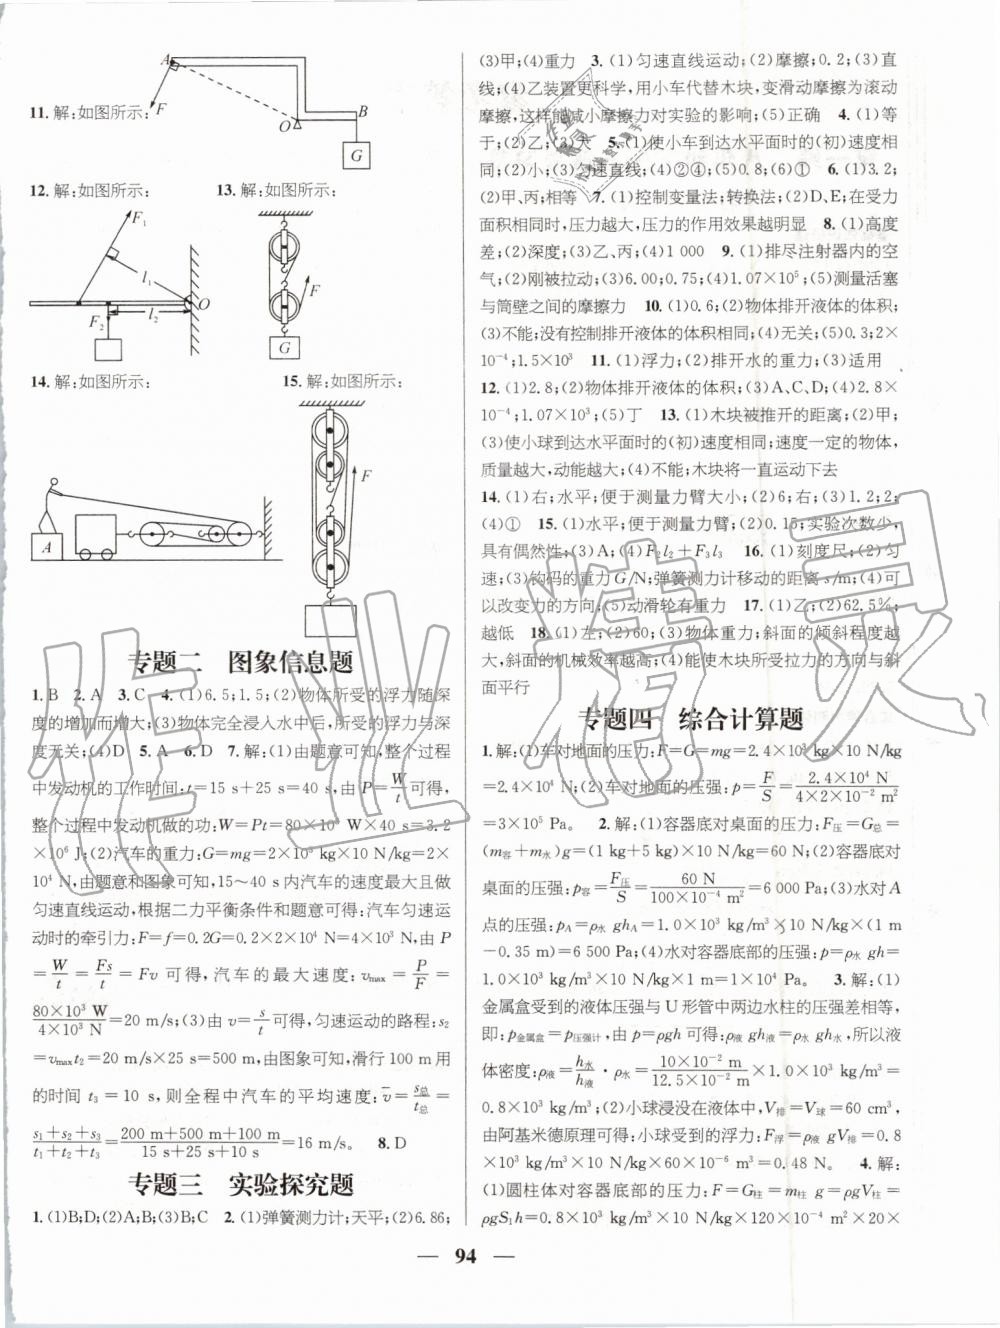 A
F
O
B
G
11. 解:如图所示:
12. 解:如图所示:
13. 解:如图所示:
F₁
l₁
O
F₂
l₂
F
G
14. 解:如图所示:
15. 解:如图所示:
F
A
专题二 图象信息题
1. B 2. A 3. C 4. (1)6.5;1.5;(2)物体所受的浮力随深
度的增加而增大;(3)物体完全浸入水中后,所受的浮力与深
度无关;(4)D 5. A 6. D 7. 解:(1)由题意可知,整个过程
中发动机的工作时间:t=15 s+25 s=40 s,由P=W/t可得,
整个过程中发动机做的功:W=Pt=80×10³ W×40 s=3.2
×10⁶ J;(2)汽车的重力:G=mg=2×10³ kg×10 N/kg=2×
10⁴ N,由题意和图象可知,15～40 s内汽车的速度最大且做
匀速直线运动,根据二力平衡条件和题意可得:汽车匀速运
动时的牵引力:F=f=0.2G=0.2×2×10⁴ N=4×10³ N,由P
=W/t=Fs/t=Fv可得,汽车的最大速度:vmax=P/F=
80×10³ W/4×10³ N=20 m/s;(3)由v=s/t可得,匀速运动的路程:s₂
=vmaxt₂=20 m/s×25 s=500 m,由图象可知,滑行100 m用
的时间t₃=10 s,则全程中汽车的平均速度:v̄=s总/t总=
s₁+s₂+s₃/t₁+t₂+t₃=200 m+500 m+100 m/15 s+25 s+10 s=16 m/s。 8. D
专题三 实验探究题
1. (1)B;D;(2)A;B;(3)B;C 2. (1)弹簧测力计;天平;(2)6.86;
(3)甲;(4)重力 3. (1)匀速直线运动;(2)摩擦;0.2;(3)直
线;(4)乙装置更科学,用小车代替木块,变滑动摩擦为滚动
摩擦,这样能减小摩擦力对实验的影响;(5)正确 4. (1)等
于;(2)乙;(3)大 5. (1)使小车到达水平面时的(初)速度相
同;(2)小;(3)匀速直线;(4)②④;(5)0.8;(6)① 6. (1)3.2;
(2)甲、丙;相等 7. (1)控制变量法;转换法;(2)D、E;在受力
面积相同时,压力越大,压力的作用效果越明显 8. (1)高度
差;(2)深度;(3)乙、丙;(4)1 000 9. (1)排尽注射器内的空
气;(2)刚被拉动;(3)6.00;0.75;(4)1.07×10⁵;(5)测量活塞
与筒壁之间的摩擦力 10. (1)0.6;(2)物体排开液体的体积;
(3)不能;没有控制排开液体的体积相同;(4)无关;(5)0.3;2×
10⁻⁴;1.5×10³ 11. (1)浮力;(2)排开水的重力;(3)适用
12. (1)2.8;(2)物体排开液体的体积;(3)A、C、D;(4)2.8×
10⁻⁴;1.07×10³;(5)丁 13. (1)木块被推开的距离;(2)甲;
(3)使小球到达水平面时的(初)速度相同;速度一定的物体,
质量越大,动能越大;(4)不能;木块将一直运动下去
14. (1)右;水平;便于测量力臂大小;(2)6;右;(3)1.2;2;
(4)① 15. (1)水平;便于测量力臂;(2)0.15;实验次数少,
具有偶然性;(3)A;(4)F₂l₂+F₃l₃ 16. (1)刻度尺;(2)匀
速;(3)钩码的重力G/N;弹簧测力计移动的距离s/m;(4)可
以改变力的方向;(5)动滑轮有重力 17. (1)乙;(2)62.5%;
越低 18. (1)左;(2)60;(3)物体重力;斜面的倾斜程度越
大,斜面的机械效率越高;(4)能使木块所受拉力的方向与斜
面平行
专题四 综合计算题
1. 解:(1)车对地面的压力:F=G=mg=2.4×10³ kg×10 N/kg
=2.4×10⁴ N;(2)车对地面的压强:p=F/S=2.4×10⁴ N/4×2×10⁻² m²
=3×10⁵ Pa。 2. 解:(1)容器底对桌面的压力:F压=G总=
(m容+m水)g=(1 kg+5 kg)×10 N/kg=60 N;(2)容器底对
桌面的压强:p容=F压/S=60 N/100×10⁻⁴ m²=6 000 Pa;(3)水对A
点的压强:pA=ρ水 ghA=1.0×10³ kg/m³×10 N/kg×(1 m
-0.35 m)=6 500 Pa;(4)水对容器底部的压强:p=ρ水 gh=
1.0×10³ kg/m³×10 N/kg×1 m=1×10⁴ Pa。 3. 解:(1)
金属盒受到的液体压强与U形管中两边水柱的压强差相等,
即:p金属盒=p压强计,由p=ρgh可得:ρ液 gh液=ρ水 gh水,所以液
体密度:ρ液=h水/h液·ρ水=10×10⁻² m/12.5×10⁻² m×1.0×10³ kg/m³=
0.8×10³ kg/m³;(2)小球浸没在液体中,V排=V球=60 cm³,
由阿基米德原理可得:小球受到的浮力:F浮=ρ液 gV排=0.8
×10³ kg/m³×10 N/kg×60×10⁻⁶ m³=0.48 N。 4. 解:
(1)圆柱体对容器底部的压力:F=G柱=m柱 g=ρgV柱=
ρgS₁h=0.8×10³ kg/m³×10 N/kg×120×10⁻⁴ m²×20×
— 94 —
作业精灵